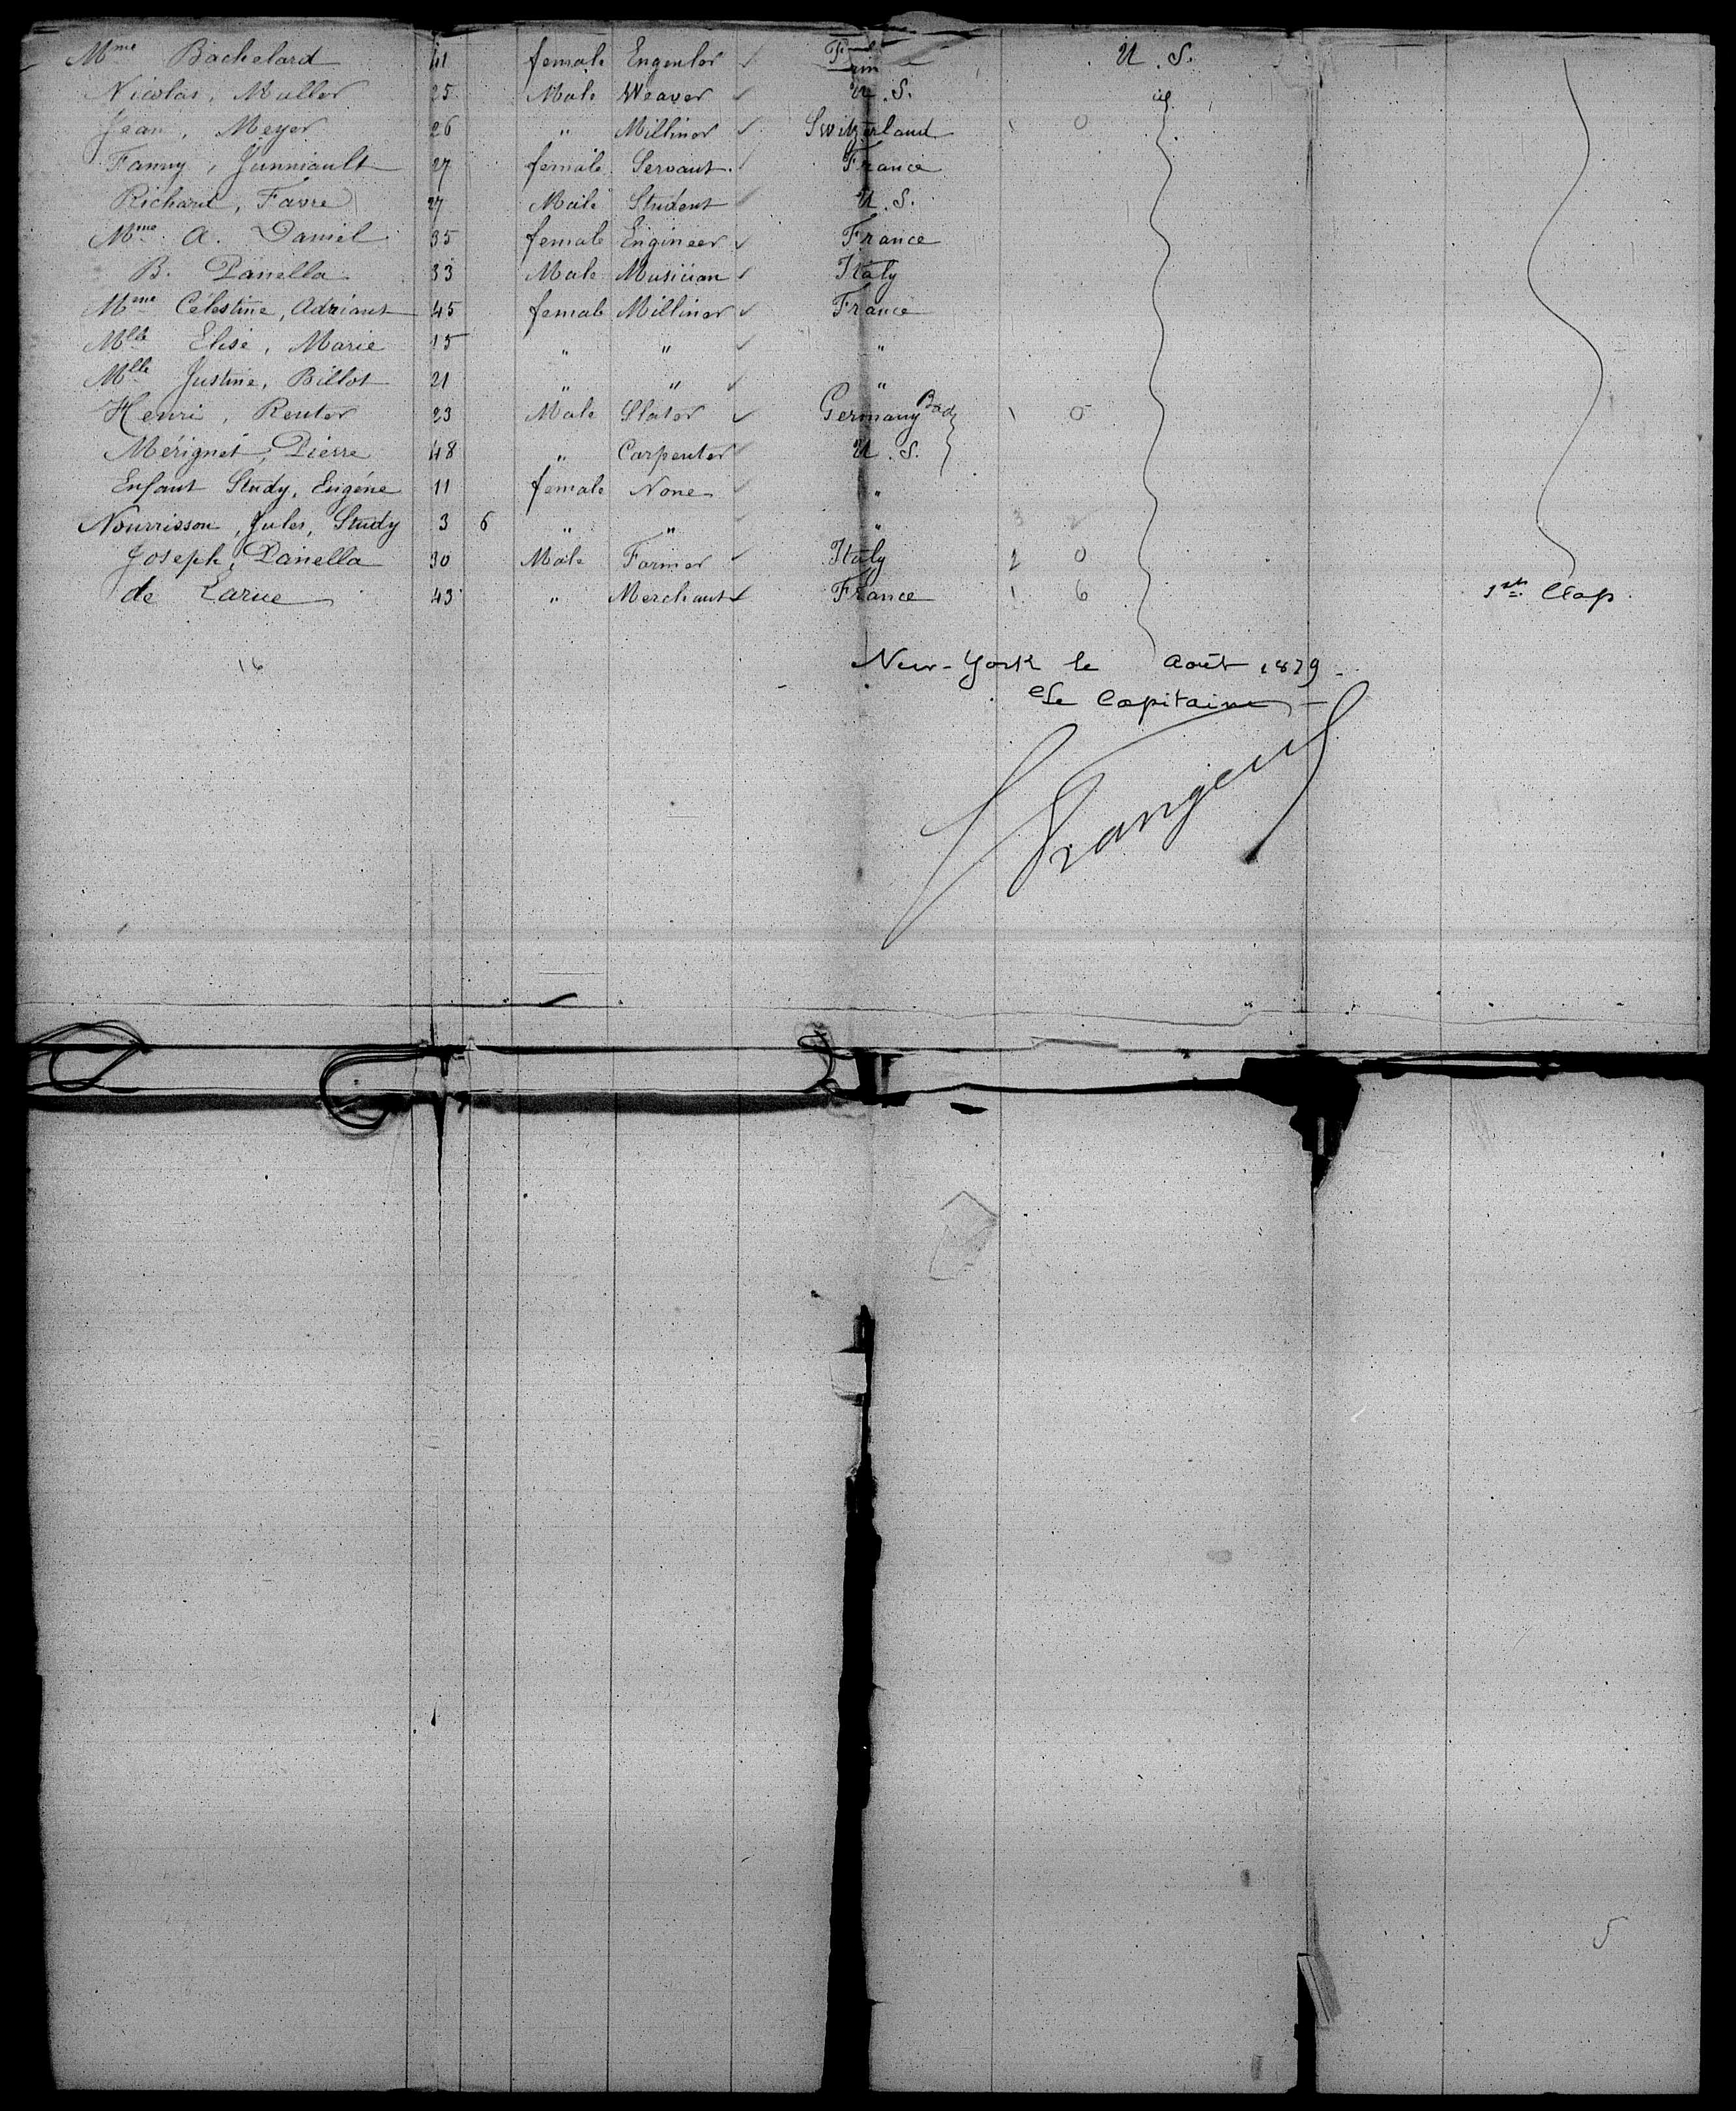 Mme Bachelard 41 female Engenlor ✓ U. S.
Nicolas, Muller 25 Male Weaver ✓ U. S.
Jean, Meyer 26 " Milliner ✓ Switzerland 1 0
Fanny, Junniault 27 female Servant ✓ France
Richard, Favre 27 Male Student ✓ U. S.
Mme A. Daniel 35 female Engineer ✓ France
B. Panella 33 Male Musician ✓ Italy
Mme Célestine, Adriant 45 female Milliner ✓ France
Mlle Elise, Marie 15 " " ✓ "
Mlle Justine, Billot 21 " " ✓ "
Henri, Reuter 23 Male Slater ✓ Germany 1 0
Mérignet, Pierre 48 " Carpenter ✓ U. S.
Enfant Study, Eugéne 11 female None ✓ "
Nourrisson, Jules, Study 3 6 " " ✓ "
Joseph, Panella 30 Male Farmer ✓ Italy 2 0
de Larue 43 " Merchant ✓ France 1 6
16
New-York le Août 1879
Le Capitaine
5